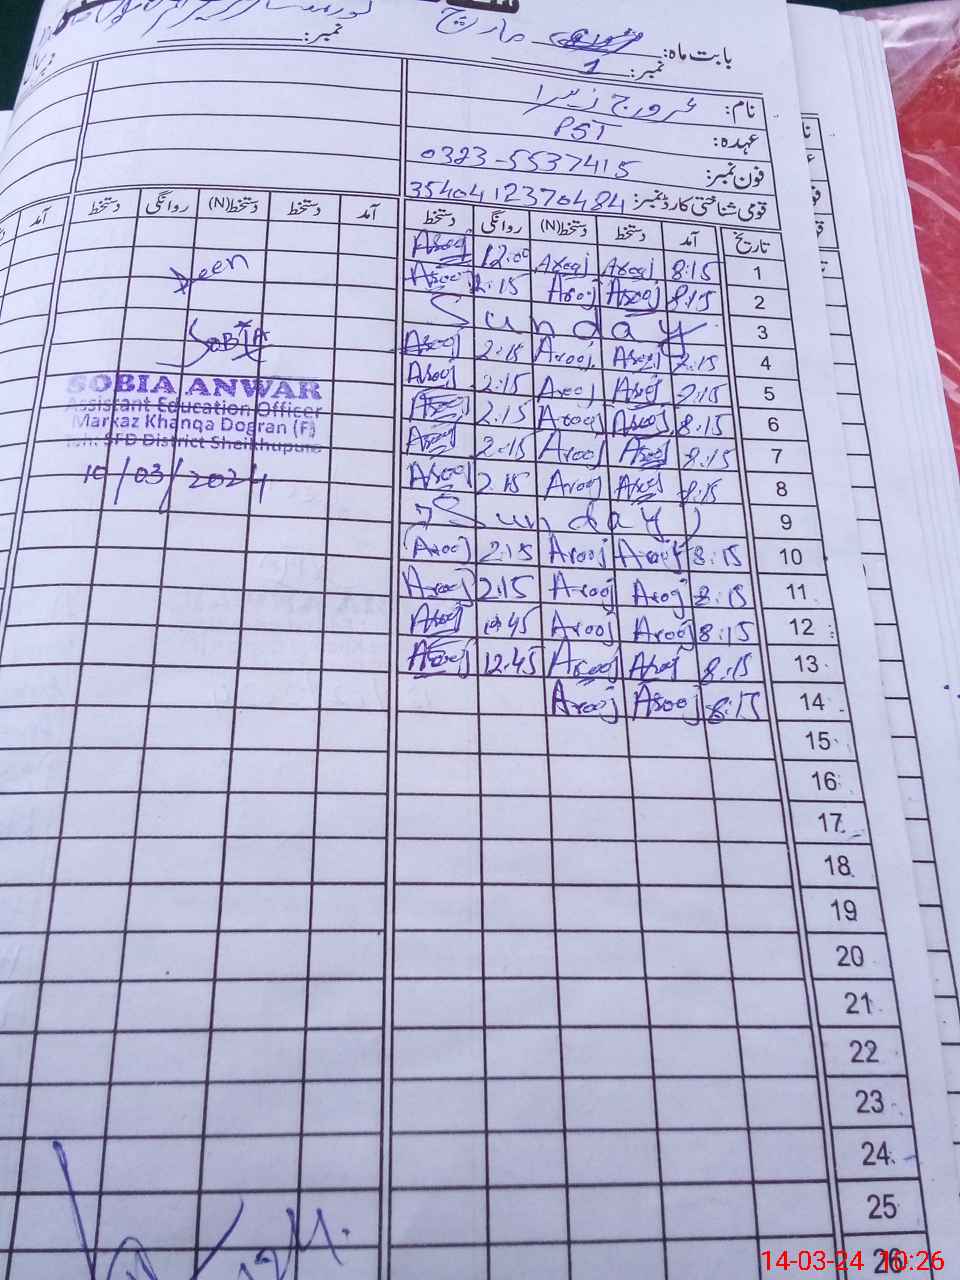 بابت ماہ: مارچ
نمبر: 1 نمبر:
نام: عروج زہرا
عہدہ: PST
فون نمبر: 0323-5537415
قومی شناختی کارڈ نمبر: 3540412370484
تاریخ آمد دستخط دستخط(N) روانگی دستخط آمد دستخط دستخط(N) روانگی دستخط آمد
1 8:15 Arooj Arooj 12:00 Arooj
2 8:15 Arooj Arooj 2:15 Arooj
3 Sunday
4 8:15 Arooj Arooj 2:15 Arooj
5 8:15 Arooj Arooj 2:15 Arooj
6 8:15 Arooj Arooj 2:15 Arooj
7 8:15 Arooj Arooj 2:15 Arooj
8 8:15 Arooj Arooj 2:15 Arooj
9 Sunday
10 8:15 Arooj Arooj 2:15 Arooj
11 8:15 Aroj Arooj 2:15 Arooj
12 8:15 Arooj Arooj Arooj
13 8:15 Arooj Arooj 12:45 Arooj
14 8:15 Arooj Arooj
15
16
17
18
19
20
21
22
23
24
25
26
Seen
SOBIA
SOBIA ANWAR
Assistant Education Officer
Markaz Khanqa Dogran (F)
Teh: SFD District Sheikhupura
10/03/2024
14-03-24 10:26